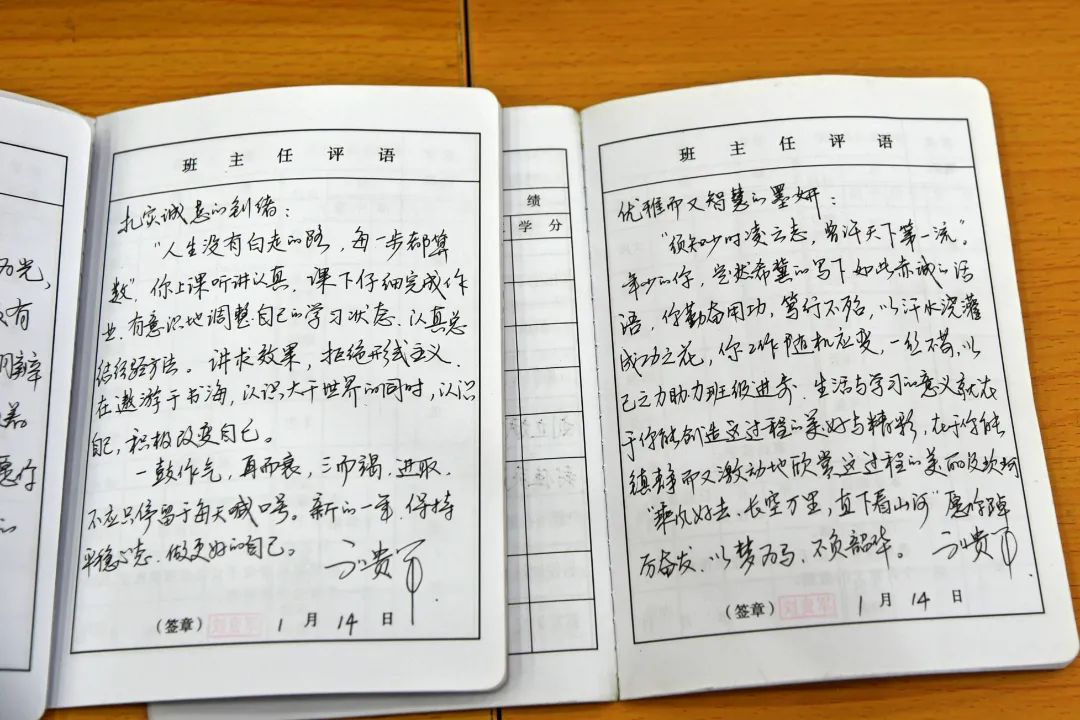 为光,
有
辩
愿你
的
班主任评语
扎实诚恳的创绪:
“人生没有白走的路,每一步都算
数”,你上课听讲认真,课下仔细完成作
业,有意识地调整自己的学习状态,认真总
结经验方法。讲求效果,拒绝形式主义。
在遨游于书海,认识大千世界的同时,认识
自己,积极改变自己。
一鼓作气,再而衰,三而竭,进取,
不应只停留于每天喊口号。新的一年,保持
平稳心态,做更好的自己。
刘贵军
(签章) 刘贵军 1月14日
绩
学分
班主任评语
优雅而又智慧的墨妍:
“须知少时凌云志,曾许天下第一流”。
年少的你,总然希冀的写下如此赤诚的话
语,你勤奋用功,笃行不殆,以汗水浇灌
成功之花,你工作随机应变,一丝不苟,以
己之力助力班级进步。生活与学习的意义就在
于你能创造这过程的美好与精彩,在于你能
镇静而又激动地欣赏这过程的美丽及坎坷
“乘风好去,长空万里,直下看山河”愿你踔
厉奋发,以梦为马,不负韶华。
刘贵军
(签章) 刘贵军 1月14日